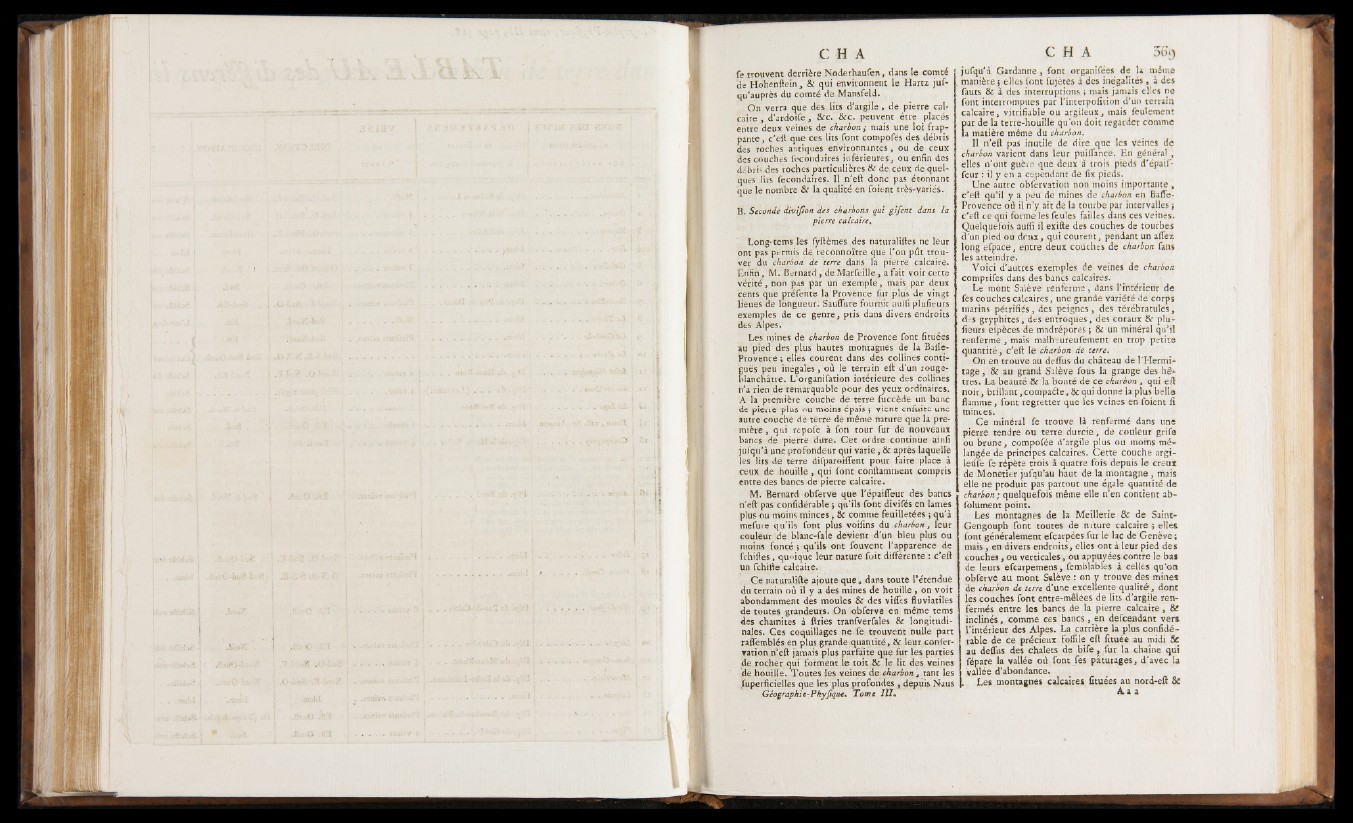 C H A
se trouvent derrière Noderhausen, dans le comté
de Hohenstein, & qui environnent le Hartz jus-
qu'auprès du comté de Mansfeld.
On verra que des lits d'argile, de pierre cal-
caire, d'ardoise, &c. &c. peuvent être placés
entre deux veines de charbon; mais une loi frap-
pante, c'est que ces lits sont composés des débris
des roches antiques environnantes, ou de ceux
des couches secondaires inférieures, ou enfin des
débris des roches particulières & de ceux de quel-
ques lits secondaires. Il n'est donc pas étonnant
que le nombre & la qualité en soient très-variés.
B. Seconde division des charbons qui gisent dans la
pierre calcaire.
Long-tems les systêmes des naturalistes ne leur
ont pas permis de reconnoître que l'on pût trou-
ver du charbon de terre dans la pierre calcaire.
Enfin, M. Bernard, de Marseille, a fait voir cette
vérité, non pas par un exemple, mais par deux
cents que présente la Provence sur plus de vingt
lieues de longueur. Saussure fournit aussi plusieurs
exemples de ce genre, pris dans divers endroits
des Alpes.
Les mines de charbon de Provence sont situées
au pied des plus hautes montagnes de la Basse-
Provence; elles courent dans des collines conti-
guës peu inégales, où le terrain est d'un rouge-
blanchâtre. L'organisation intérieure des collines
n'a rien de remarquable pour des yeux ordinaires.
A la première couche de terre succède un banc
de pierre plus ou moins épais; vient ensuite une
autre couche de terre de même nature que la pre-
mière, qui repose à son tour sur de nouveaux
bancs de pierre dure. Cet ordre continue ainsi
jusqu'à une profondeur qui varie, & après laquelle
les lits de terre disparoissent pour faire place à
ceux de houille, qui sont constamment compris
entre des bancs de pierre calcaire.
M. Bernard observe que l'épaisseur des bancs
n'est pas considérable; qu'ils sont divisés en lames
plus ou moins minces, & comme feuilletées; qu'à
mesure qu'ils sont plus voisins du charbon, leur
couleur de blanc-sale devient d'un bleu plus ou
moins foncé; qu'ils ont souvent l'apparence de
schistes, quoique leur nature soit différente: c'est
un schiste calcaire.
Ce naturaliste ajoute que, dans toute l'étendue
du terrain où il y a des mines de houille, on voit
abondamment des moules & des visses fluviatiles
de toutes grandeurs. On observe en même tems
des chamites à stries transversales & longitudi-
nales. Ces coquillages ne se trouvent nulle part
rassemblés en plus grande quantité, & leur conser-
vation n'est jamais plus parfaite que sur les parties
de rocher qui forment le toit & le lit des veines
de houille. Toutes les veines de charbon, tant les
superficielles que les plus profondes, depuis Naus
Géographie-Physique. Tome III.
C H A 369
jusqu'à Gardanne, sont organisées de la même
manière; elles sont sujètes à des inégalités, à des
sauts & à des interruptions; mais jamais elles ne
sont interrompues par l'interposition d'un terrain
calcaire, vitrifiable ou argileux, mais seulement
par de la terre-houille qu'on doit regarder comme
la matière même du charbon.
Il n'est pas inutile de dire que les veines de
charbon varient dans leur puissance. En général,
elles n'ont guère que deux à trois pieds d'épais-
seur: il y en a cependant de six pieds.
Une autre observation non moins importante,
c'est qu'il y a peu de mines de charbon en Basse-
Provence où il n'y ait de la tourbe par intervalles;
c'est ce qui forme les seules failles dans ces veines.
Quelquefois aussi il existe des couches de tourbes
d'un pied ou deux, qui courent, pendant un assez
long espace, entre deux couches de charbon sans
les atteindre.
Voici d'autres exemples de veines de charbon
comprises dans des bancs calcaires.
Le mont Salève renferme, dans l'intérieur de
ses couches calcaires, une grande variété de corps
marins pétrifiés, des peignes, des térébratules,
des gryphites, des entroques, des coraux & plu-
sieurs espèces de madrépores; & un minéral qu'il
renferme, mais malheureusement en trop petite
quantité, c'est le charbon de terre.
On en trouve au dessus du château de l'Hermi-
tage, & au grand Salève sous la grange des hê-
tres. La beauté & la bonté de ce charbon, qui est
noir, brillant, compacte, & qui donne la plus belle
flamme, font regretter que les veines en soient si
minces.
Ce minéral se trouve là renfermé dans une
pierre tendre ou terre durcie, de couleur grise
ou brune, composée d'argile plus ou moins mé-
langée de principes calcaires. Cette couche argi-
leuse se répète trois à quatre fois depuis le creux
de Monetier jusqu'au haut de la montagne, mais
elle ne produit pas partout une égale quantité de
charbon; quelquefois même elle n'en contient ab-
solument point.
Les montagnes de la Meillerie & de Saint-
Gengouph sont toutes de nature calcaire; elles
sont généralement escarpées sur le lac de Genève;
mais, en divers endroits, elles ont à leur pied des
couches, ou verticales, ou appuyées contre le bas
de leurs escarpemens, semblables à celles qu'on
observe au mont Salève: on y trouve des mines
de charbon de terre d'une excellente qualité, dont
les couches sont entre-mêlées de lits d'argile ren-
fermés entre les bancs de la pierre calcaire, &
inclinés, comme ces bancs, en descendant vers
l'intérieur des Alpes. La carrière la plus considé-
rable de ce précieux fossile est située au midi &
au dessus des chalets de bise, sur la chaîne qui
sépare la vallée où sont ses pâturages, d'avec la
vallée d'abondance.
Les montagnes calcaires situées au nord-est &
A a a